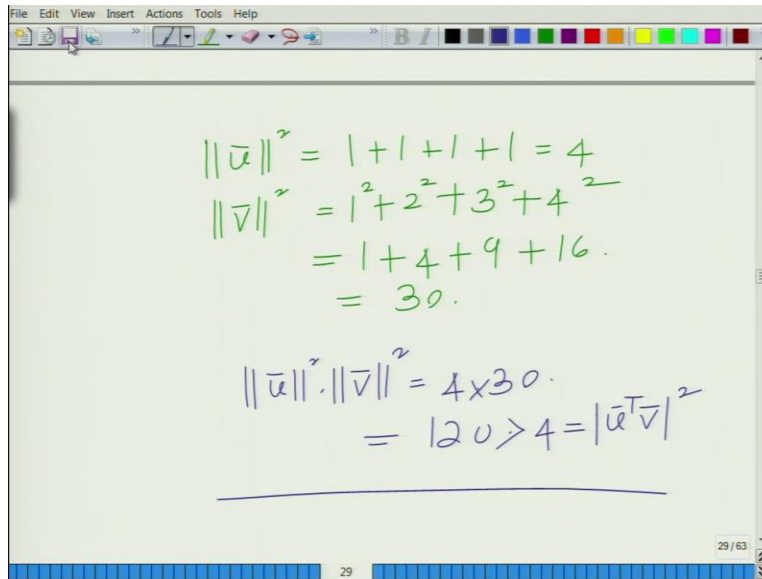 File Edit View Insert Actions Tools Help
B I
||ū||² = 1+1+1+1 = 4
||v̄||² = 1²+2²+3²+4²
= 1+4+9+16.
= 30.
||ū||².||v̄||² = 4x30.
= 120 > 4 = |ūᵀv̄|²
29/63
29